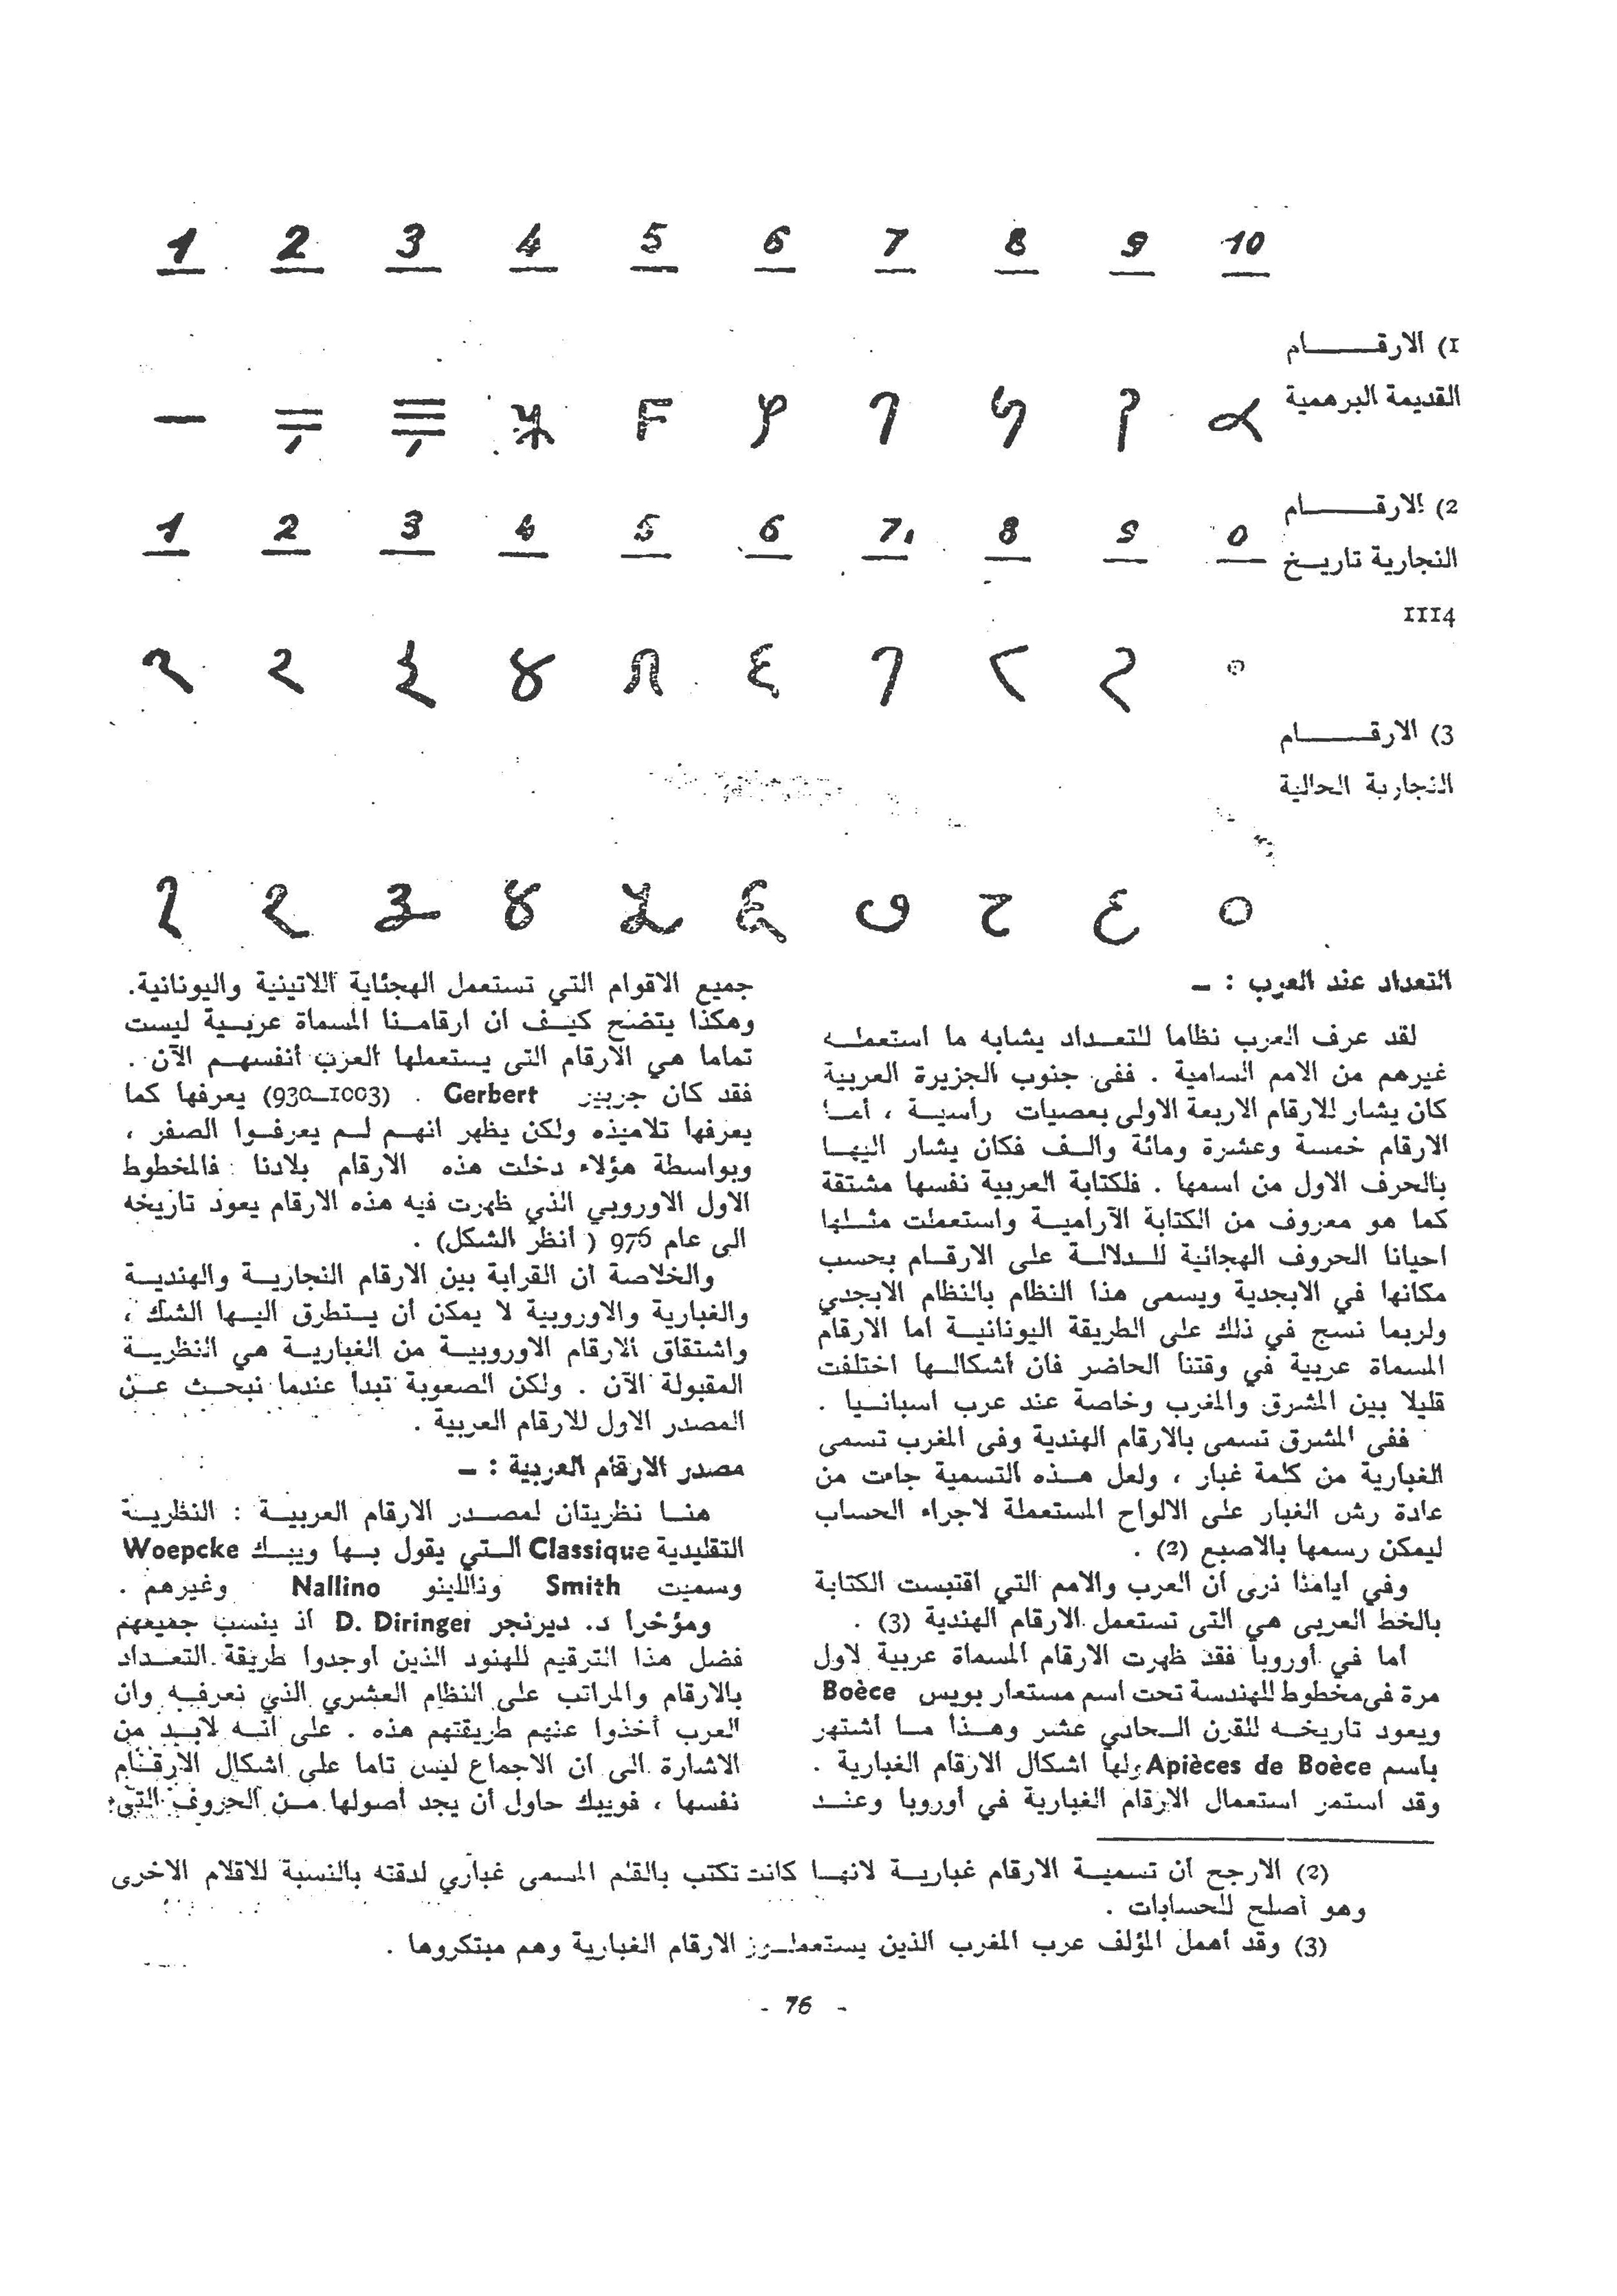 1 2 3 4 5 6 7 8 9 10
1) الارقـــــام
القديمة البرهمية
2) الارقـــــام
النجارية تاريـخ
1114
1 2 3 4 5 6 7 8 9 0
3) الارقـــــام
النجارية الحالية
التعداد عند العرب : ـ
لقد عرف العرب نظاما للتعـداد يشابه ما استعملـه
غيرهم من الامم السامية . ففى جنوب الجزيرة العربية
كان يشار للارقام الاربعة الاولى بعصيات رأسيـة ، أمـا
الارقام خمسة وعشرة ومائة والـف فكان يشار اليهـا
بالحرف الاول من اسمها . فلكتابة العربية نفسها مشتقة
كما هو معروف من الكتابة الآراميـة واستعملت مثـلها
احيانا الحروف الهجائية للـدلالـة على الارقـام بحسب
مكانها في الابجدية ويسمى هذا النظام بالنظام الابجدي
ولربما نسج في ذلك على الطريقة اليونانيـة اما الارقام
المسماة عربية في وقتنا الحاضر فان أشكالـها اختلفت
قليلا بين المشرق والمغرب وخاصة عند عرب اسبانـيا .
ففى المشرق تسمى بالارقام الهندية وفى المغرب تسمى
الغبارية من كلمة غبار ، ولعل هـذه التسمية جاءت من
عادة رش الغبار على الالواح المستعملة لاجراء الحساب
ليمكن رسمها بالاصبع (2) .
وفي ايامنا نرى ان العرب والامم التي اقتبست الكتابة
بالخط العربى هي التى تستعمل الارقام الهندية (3) .
أما في أوروبا فقد ظهرت الارقام المسماة عربية لاول
مرة فى مخطوط للهندسة تحت اسم مستعار بويس Boèce
ويعود تاريخـه للقرن الـحادي عشر وهـذا مـا أشتهر
باسم Apièces de Boèce ولها اشكال الارقام الغبارية .
وقد استمر استعمال الارقام الغبارية في أوروبا وعنـد
جميع الاقوام التي تستعمل الهجئاية اللاتينية واليونانية.
وهكذا يتضح كيـف ان ارقامـنا المسماة عربـية ليست
تماما هي الارقام التى يستعملها العرب أنفسهـم الآن .
فقد كان جربير Gerbert . (930—1003) يعرفها كما
يعرفها تلاميذه ولكن يظهر انهـم لـم يعرفـوا الصفر ،
وبواسطة هؤلاء دخلت هذه الارقام بلادنا : فالمخطوط
الاول الاوروبي الذي ظهرت فيه هذه الارقام يعود تاريخه
الى عام 976 ( أنظر الشكل) .
والخلاصة ان القرابة بين الارقام النجاريـة والهنديـة
والغبارية والاوروبية لا يمكن أن يـتطرق اليـها الشك ،
واشتقاق الارقام الاوروبيـة من الغباريـة هي النظريـة
المقبولة الآن . ولكن الصعوبة تبدأ عندما نبحـث عـن
المصدر الاول للارقام العربية .
مصدر الارقام العربية : ـ
هنـا نظريتان لمصـدر الارقام العربيـة : النظريـة
التقليدية Classique الـتي يقول بـها ويبـك Woepcke
وسميث Smith ونالليانو Nallino وغيرهم .
ومؤخرا د. ديرنجر D. Diringer اذ ينسب جميعهم
فضل هذا الترقيم للهنود الذين أوجدوا طريقة التعـداد
بالارقام والمراتب على النظام العشري الذي نعرفـه وان
العرب أخذوا عنهم طريقتهم هذه . على أنـه لابـد من
الاشارة الى ان الاجماع ليس تاما على اشكال الارقـام
نفسها ، فويبك حاول أن يجد أصولها مـن الحروف التي
(2) الارجح أن تسميـة الارقام غباريـة لانهـا كانت تكتب بالقلم المسمى غباري لدقته بالنسبة للاقلام الاخرى
وهو أصلح للحسابات .
(3) وقد أهمل المؤلف عرب المغرب الذين يستعملـون الارقام الغبارية وهم مبتكروها .
- 76 -